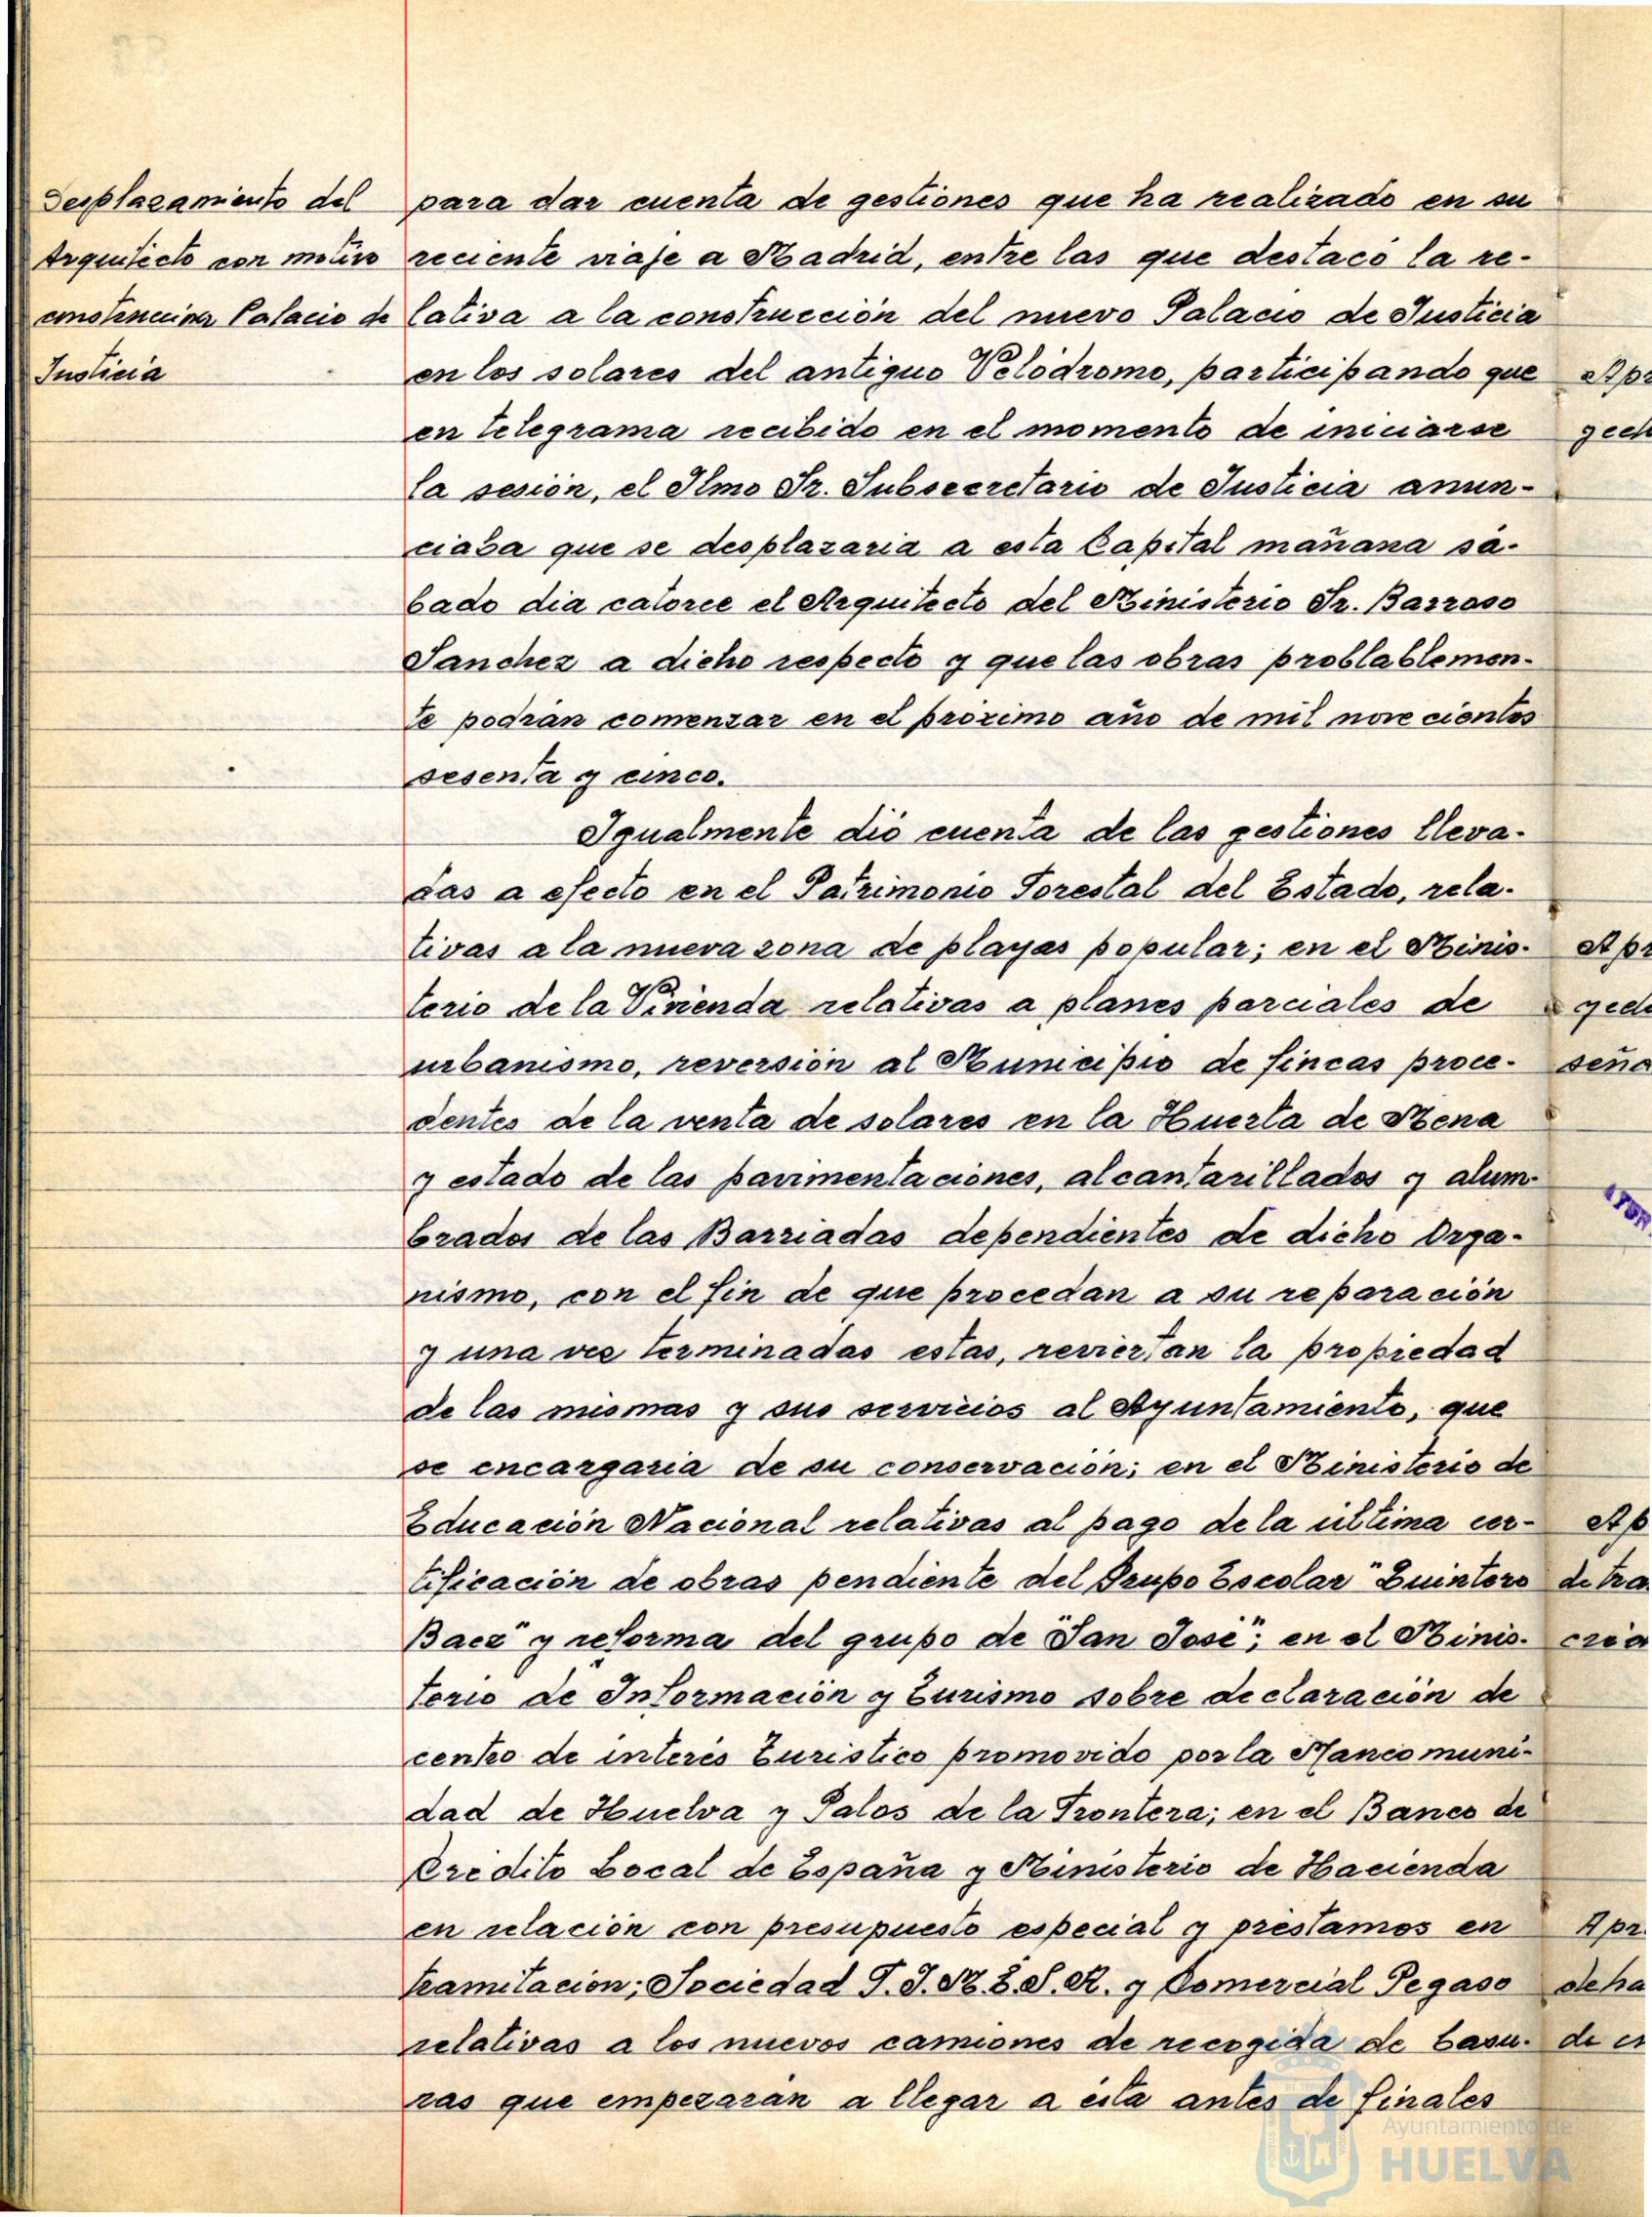 Desplazamiento del
Arquitecto con motivo
construccion Palacio de
Justicia
para dar cuenta de gestiones que ha realizado en su
reciente viaje a Madrid, entre las que destacó la re-
lativa a la construcción del nuevo Palacio de Justicia
en los solares del antiguo Velódromo, participando que
en telegrama recibido en el momento de iniciarse
la sesión, el Ilmo Sr. Subsecretario de Justicia anun-
ciaba que se desplazaria a esta Capital mañana sá-
bado dia catorce el Arquitecto del Ministerio Sr. Barroso
Sanchez a dicho respecto y que las obras problablemen-
te podrán comenzar en el próximo año de mil novecientos
sesenta y cinco.
Igualmente dió cuenta de las gestiones lleva-
das a efecto en el Patrimonio Forestal del Estado, rela-
tivas a la nueva zona de playas popular; en el Minis-
terio de la Vivienda relativas a planes parciales de
urbanismo, reversión al Municipio de fincas proce-
dentes de la venta de solares en la Huerta de Mena
y estado de las pavimentaciones, alcantarillados y alum-
brados de las Barriadas dependientes de dicho Orga-
nismo, con el fin de que procedan a su reparación
y una vez terminadas estas, reviertan la propiedad
de las mismas y sus servicios al Ayuntamiento, que
se encargaria de su conservación; en el Ministerio de
Educación Nacional relativas al pago de la última cer-
tificación de obras pendiente del Grupo Escolar "Quintero
Baez" y reforma del grupo de "San José"; en el Minis-
terio de Información y Turismo sobre declaración de
centro de interés Turistico promovido por la Mancomuni-
dad de Huelva y Palos de la Frontera; en el Banco de
Crédito Local de España y Ministerio de Hacienda
en relación con presupuesto especial y préstamos en
tramitacion; Sociedad F.I.M.E.S.A. y Comercial Pegaso
relativas a los nuevos camiones de recogida de basu-
ras que empezarán a llegar a ésta antes de finales
Ayuntamiento de
HUELVA